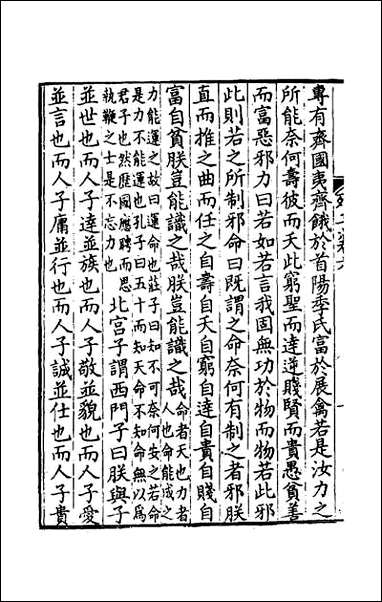 專有齊國夷齊餓於首陽季氏富於展禽若是汝力之
所能柰何壽彼而夭此窮聖而達逆賤賢而貴愚貧善
而富惡邪力曰若如若言我固無功於物而物若此邪
此則若之所制邪命曰既謂之命柰何有制之者邪朕
直而推之曲而任之自壽自夭自窮自達自貴自賤自
富自貧朕豈能識之哉朕豈能識之哉命者天也力者人也命能成之
力能運之故曰運命也莊子曰知不可柰何安之若命
是力不能運也孔子曰五十而知天命不知命無以爲
君子也然歷國應聘而思
執鞭之士是不忘力也北宮子謂西門子曰朕與子
並世也而人子達並族也而人子敬並貌也而人子愛
並言也而人子庸並行也而人子誠並仕也而人子貴